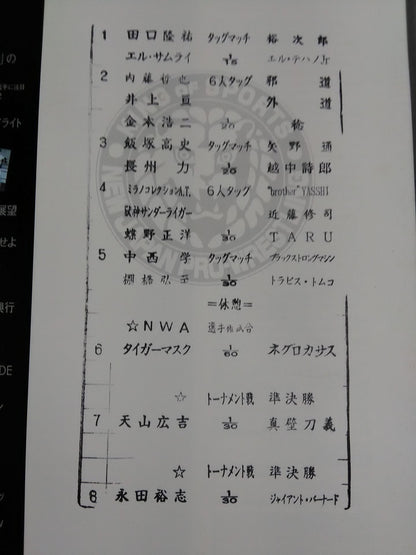 1 田口隆祐 タッグマッチ 裕次郎
エル・サムライ 1/15 エル・テハノJr
2 内藤哲也 6人タッグ 邪道
井上亘 外道
金本浩二 1/20 稔
3 飯塚高史 タッグマッチ 矢野通
長州力 1/20 越中詩郎
4 ミラノコレクションA.T. 6人タッグ "brother"YASSHI
獣神サンダーライガー 近藤修司
蝶野正洋 1/30 TARU
5 中西学 タッグマッチ ブラックストロングマシン
棚橋弘至 1/30 トラビス・トムコ
=休憩=
☆NWA 選手権試合
6 タイガーマスク 1/60 ネグロカサス
☆ トーナメント戦 準決勝
7 天山広吉 1/30 真壁刀義
☆ トーナメント戦 準決勝
8 永田裕志 1/30 ジャイアント・バーナード
ライト
展望
せよ
興行
DE